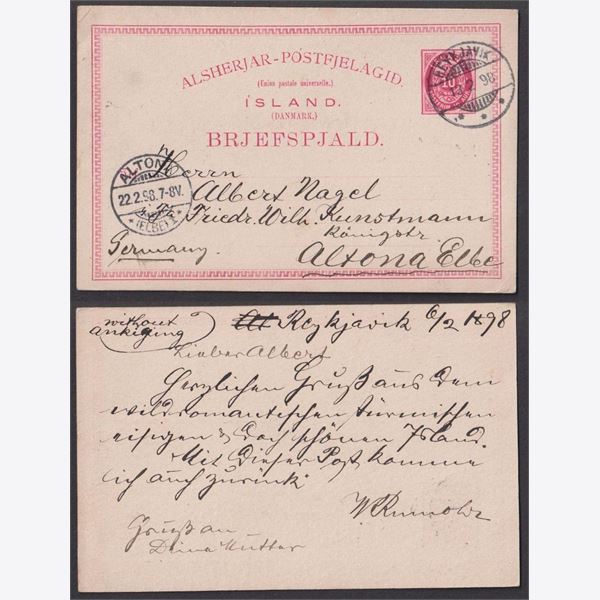 ALSHERJAR-PÓSTFJELAGID.
(Union postale universelle.)
ÍSLAND.
(DANMARK.)
BRJEFSPJALD.
10
REYKJAVIK
2 98
ALTONA
22.2.98.7-8V.
* (ELBE) 1 *
Herrn
Albert Nagel
Friedr. Wilh. Kunstmann
Königstr
Altona Elbe
Germany.
without
Reykjavik 6/2 1898
Lieber Albert
Herzlichen Gruß aus dem
wildromantischen stürmischen
eisigen & doch schönen Island.
Mit dieser Post komme
ich auch zurück
Gruß an
Deine Mutter